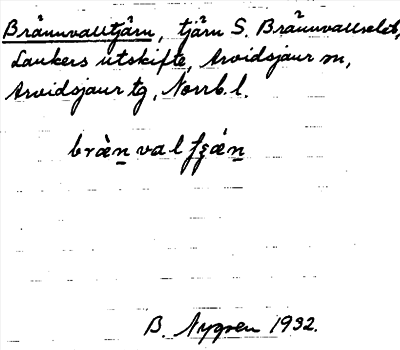 Brännvalltjärn, tjärn S. Brännvallselet,
Laukers utskifte, Arvidsjaur sn,
Arvidsjaur tg, Norrb. l.
bràn val
B. Nygren 1932.